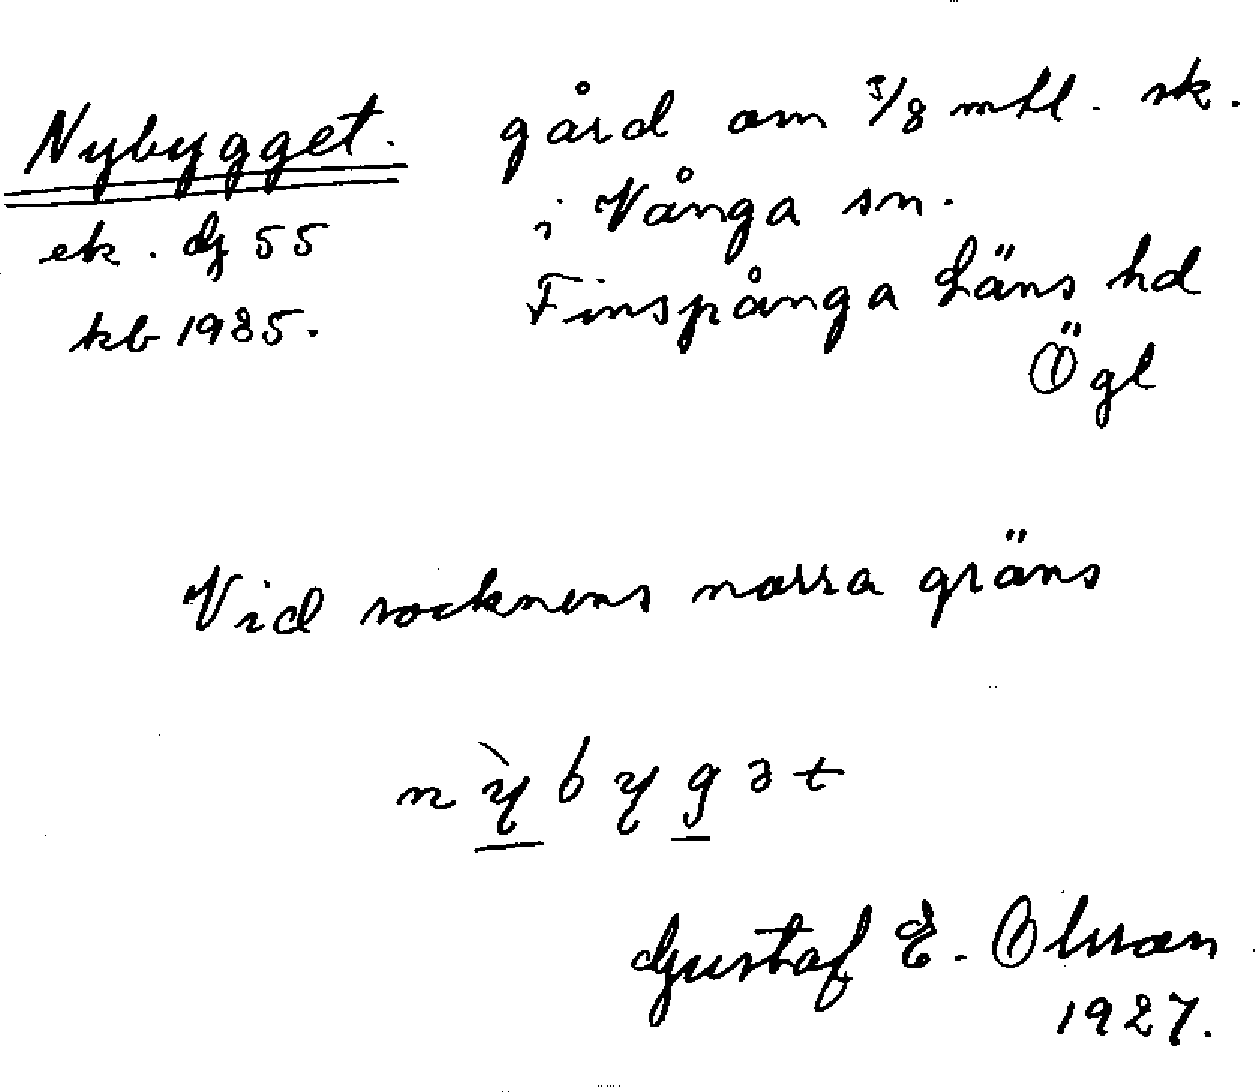 Nybygget.
ek. dj 55
kb 1985.
gård om 3/8 mtl. sk.
i Vånga sn.
Finspånga Läns hd
Ögl
Vid socknens norra gräns
nỳbygət
Gustaf E. Olsson
1927.